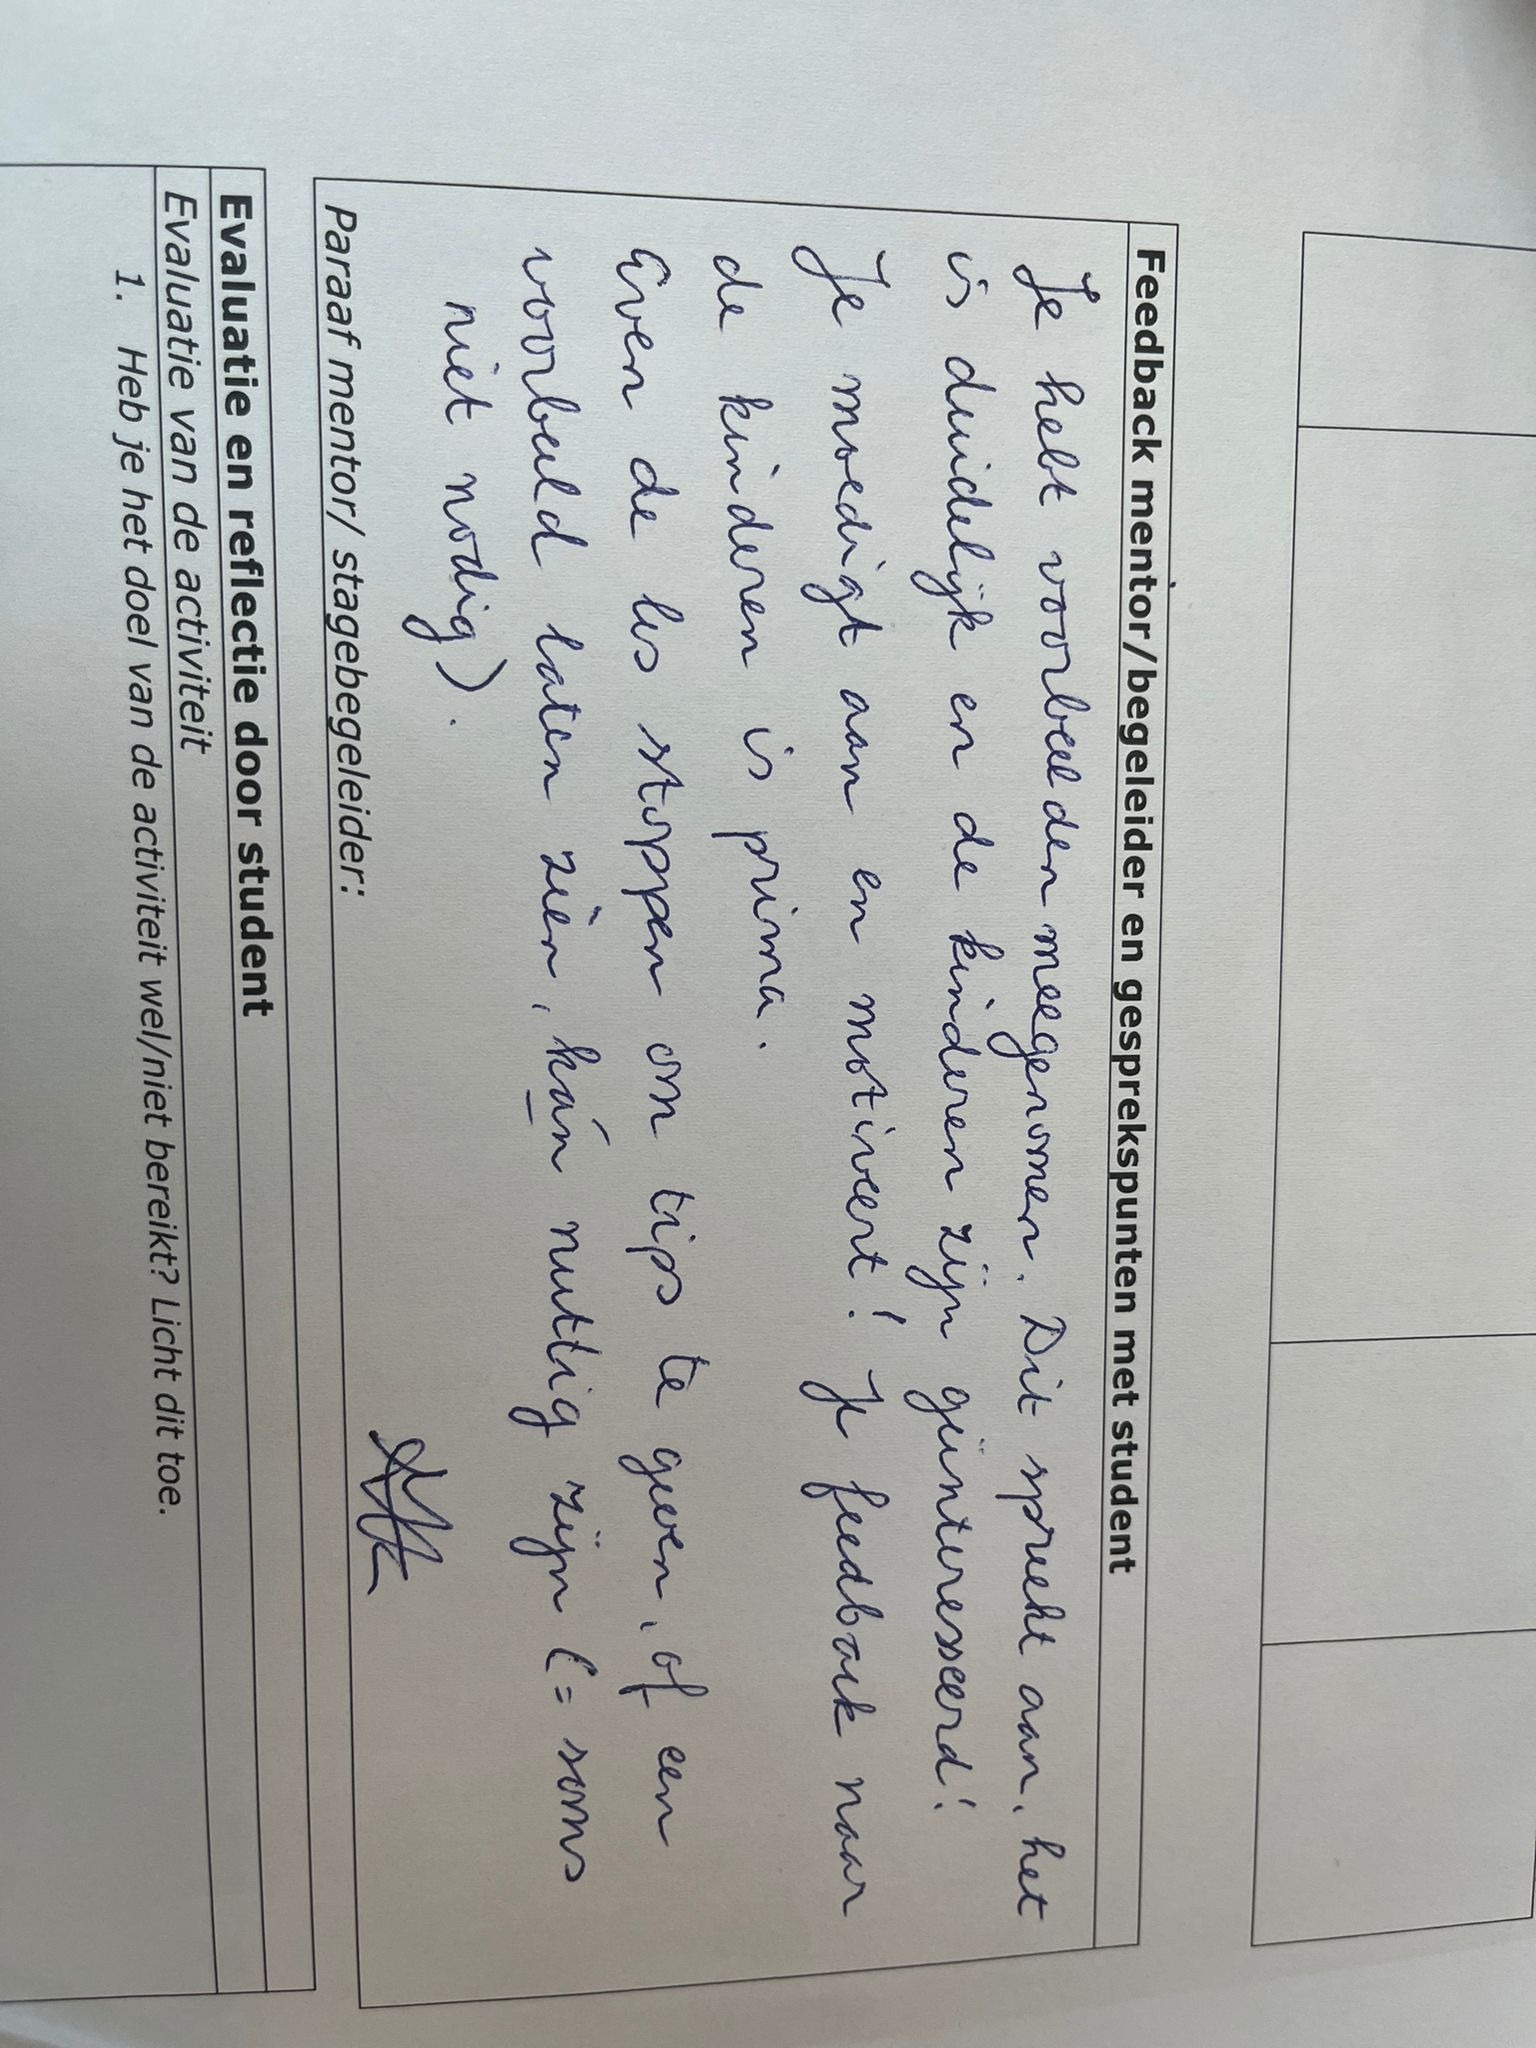 Feedback mentor/begeleider en gesprekspunten met student
Je hebt voorbeelden meegenomen. Dit spreekt aan, het
is duidelijk en de kinderen zijn geïnteresseerd!
Je moedigt aan en motiveert! Je feedback naar
de kinderen is prima.
Even de les stoppen om tips te geven, of een
voorbeeld laten zien, kán nuttig zijn (= soms
niet nodig).
Paraaf mentor/ stagebegeleider:
Evaluatie en reflectie door student
Evaluatie van de activiteit
1. Heb je het doel van de activiteit wel/niet bereikt? Licht dit toe.